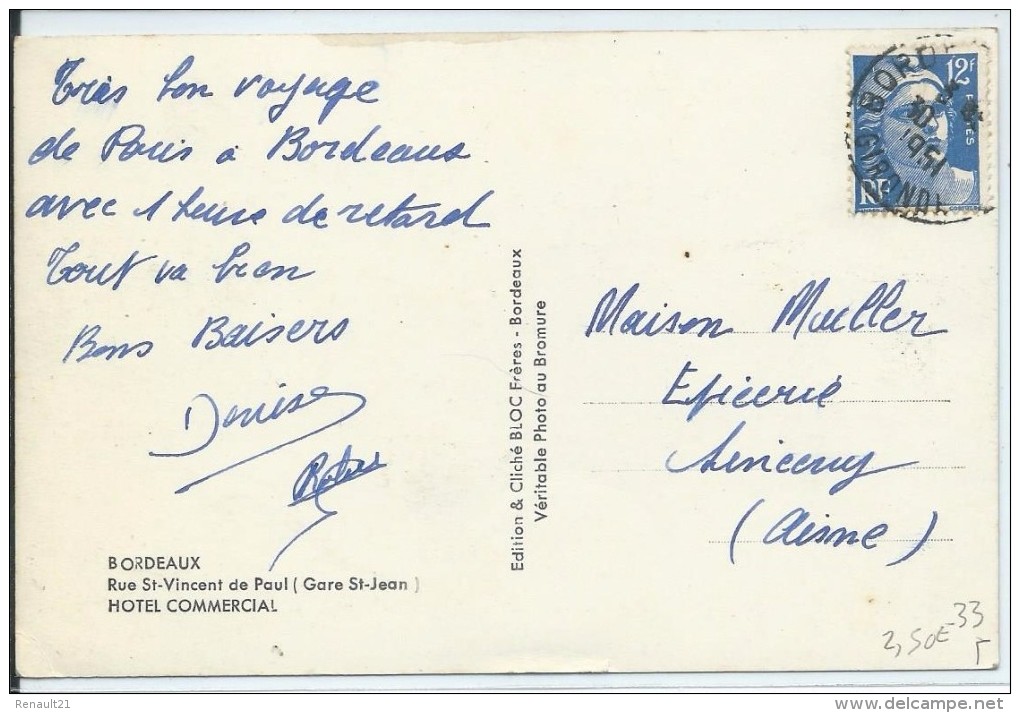 Très bon voyage
de Paris à Bordeaux
avec 1 heure de retard
Tout va bien
Bons Baisers
Denise
BORDEAUX
Rue St-Vincent de Paul ( Gare St-Jean )
HOTEL COMMERCIAL
Edition & Cliché BLOC Frères - Bordeaux
Véritable Photo au Bromure
12F
RF
BORDE
30
1951
Maison Mueller
Epicerie
Sinceny
(Aisne)
33
2,50E
Renault21
delcampe.net